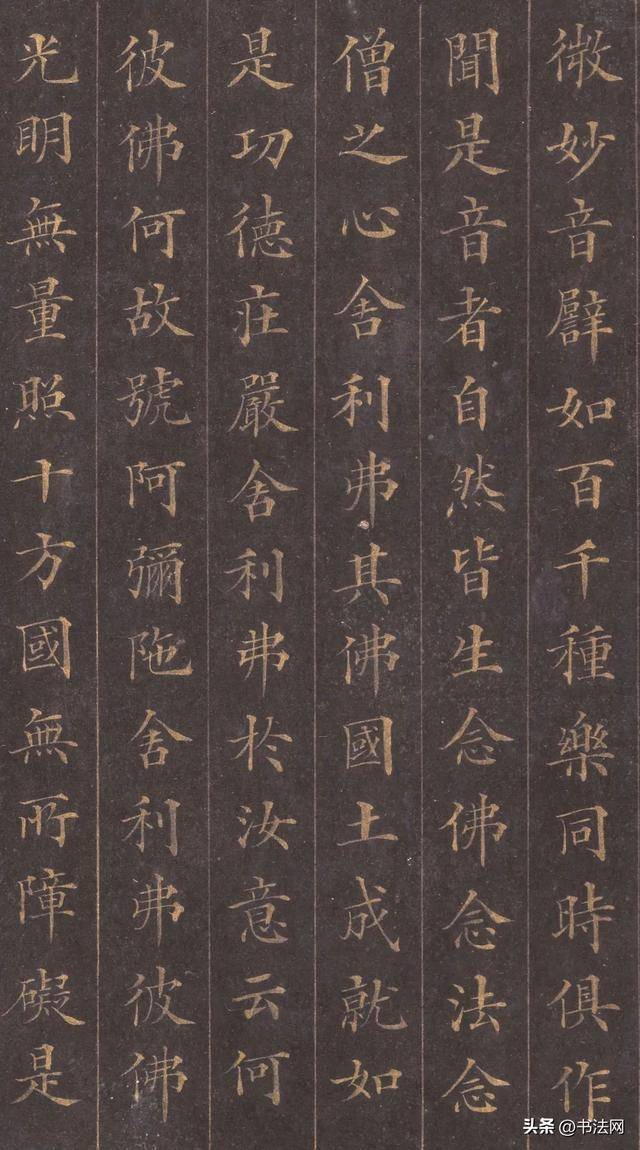 微妙音譬如百千種樂同時俱作
聞是音者自然皆生念佛念法念
僧之心舍利弗其佛國土成就如
是功德莊嚴舍利弗於汝意云何
彼佛何故號阿彌陁舍利弗彼佛
光明無量照十方國無所障礙是
头条 @书法网